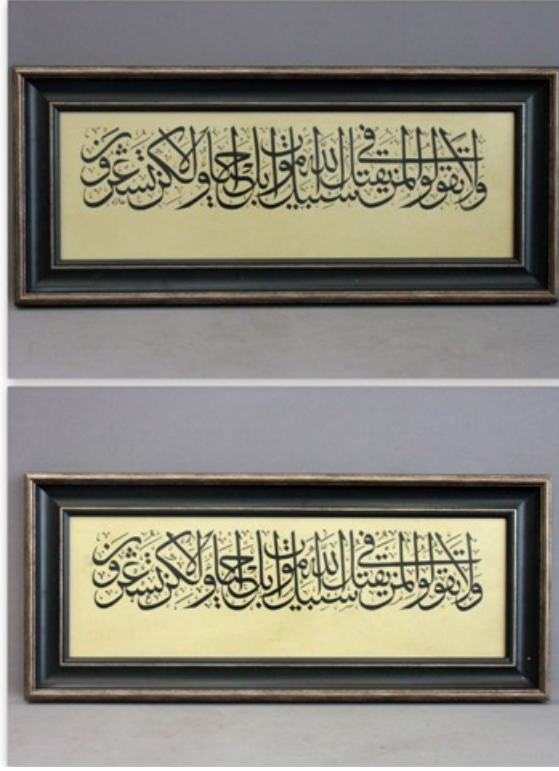 ولا تقولوا لمن يقتل في سبيل الله اموات بل احياء ولكن لا تشعرون
ولا تقولوا لمن يقتل في سبيل الله اموات بل احياء ولكن لا تشعرون